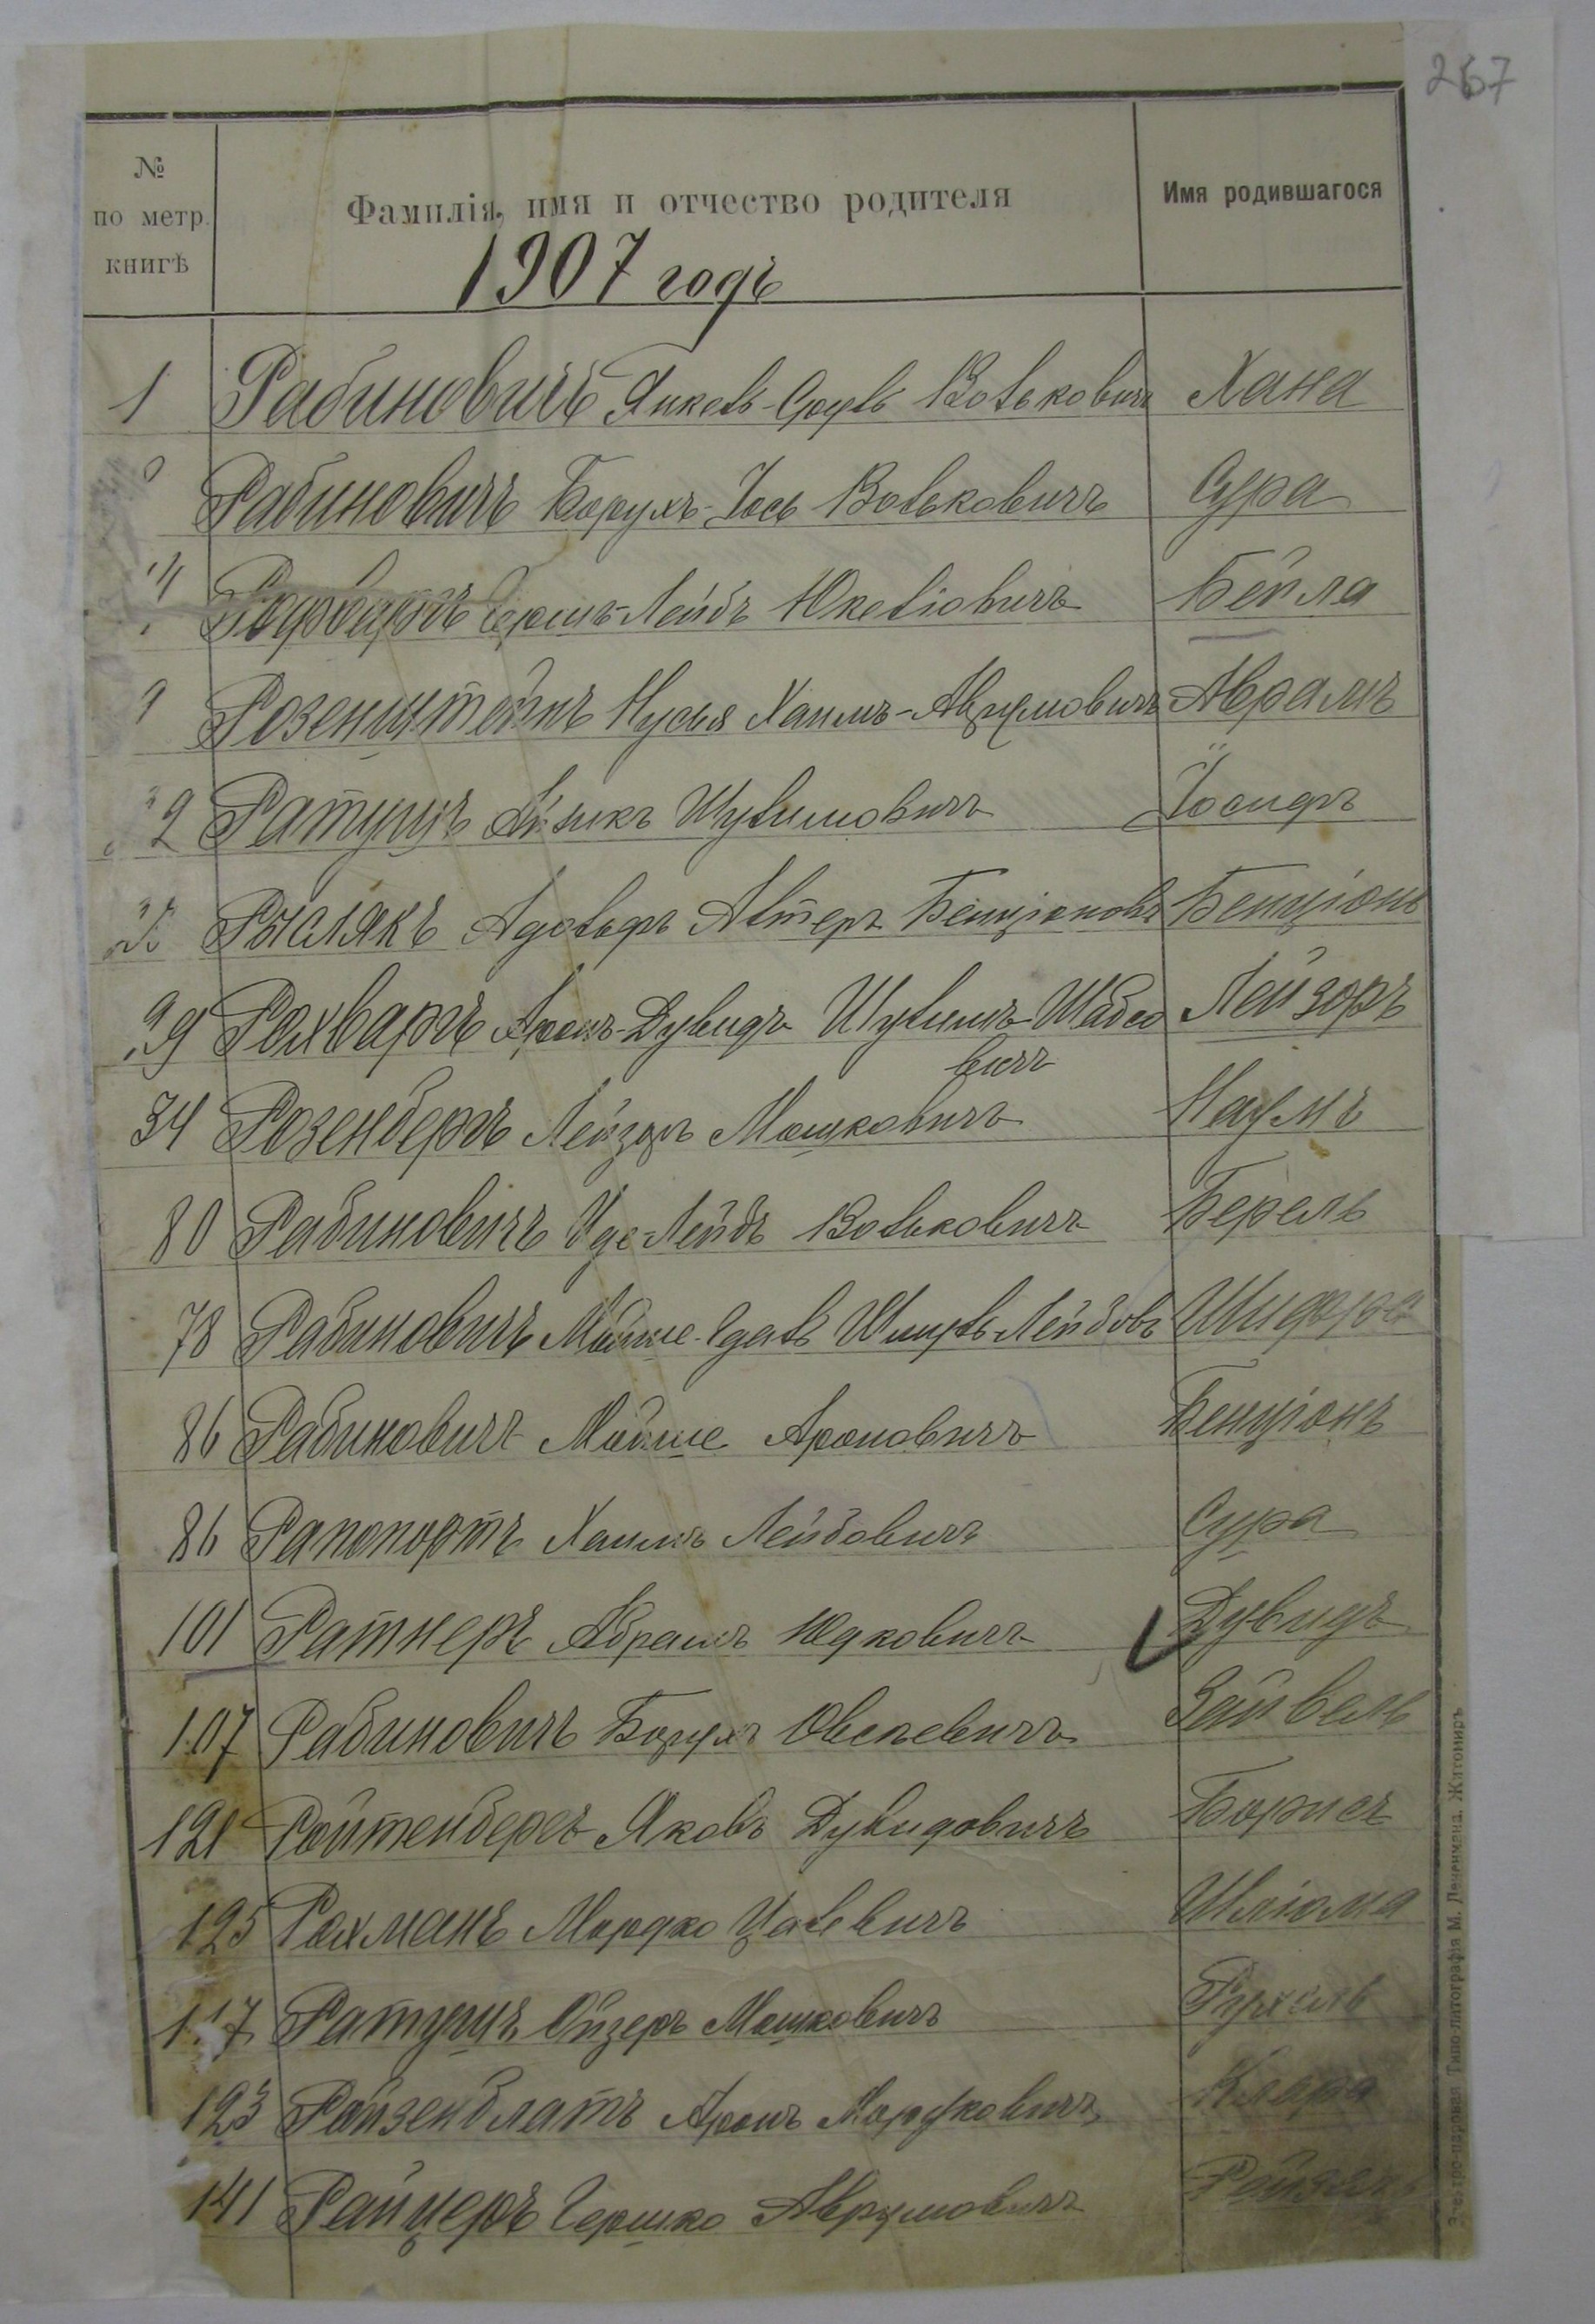 267
№ по метр. книгѣ
Фамилія, имя и отчество родителя
Имя родившагося
1907 годъ
1 Рабиновичъ Янкель-Сруль Вольковичъ Хана
Рабиновичъ Борухъ-Іось Вольковичъ Сура
Гершъ-Лейбъ Юкеліовичъ Бейла
Розенштейнъ Нусья Хаимъ-Аврумовичъ Авраамъ
Ратушъ Айзикъ Шулимовичъ Іосифъ
Рыслякъ Адольфъ Альтеръ Бенціоновъ Бенціонъ
Рохваргъ Аронъ-Дувидъ Шулимъ-Шабсо Лейзоръ
вичъ
34 Розенбергъ Лейзоръ Мошковичъ Наумъ
80 Рабиновичъ Уде-Лейбъ Вольковичъ Берель
78 Рабиновичъ Мойше-Едаль Шмуль-Лейбовъ Шифра
86 Рабиновичъ Мойше Ароновичъ Бенціонъ
86 Рапопортъ Хаимъ Лейбовичъ Сура
101 Ратнеръ Абрамъ Юдковичъ Дувидъ
107 Рабиновичъ Борухъ Овсеевичъ Зайвель
121 Ройтенбергъ Яковъ Дувидовичъ Борисъ
125 Рохманъ Мордко Цалевичъ Шліома
117 Ратушъ Ойзеръ Мошковичъ Рухель
123 Ройзенблатъ Аронъ Мордковичъ Клара
141 Райцеръ Гершко Аврумовичъ Рейзя
Типо-литографія М. Дененмана. Житомиръ